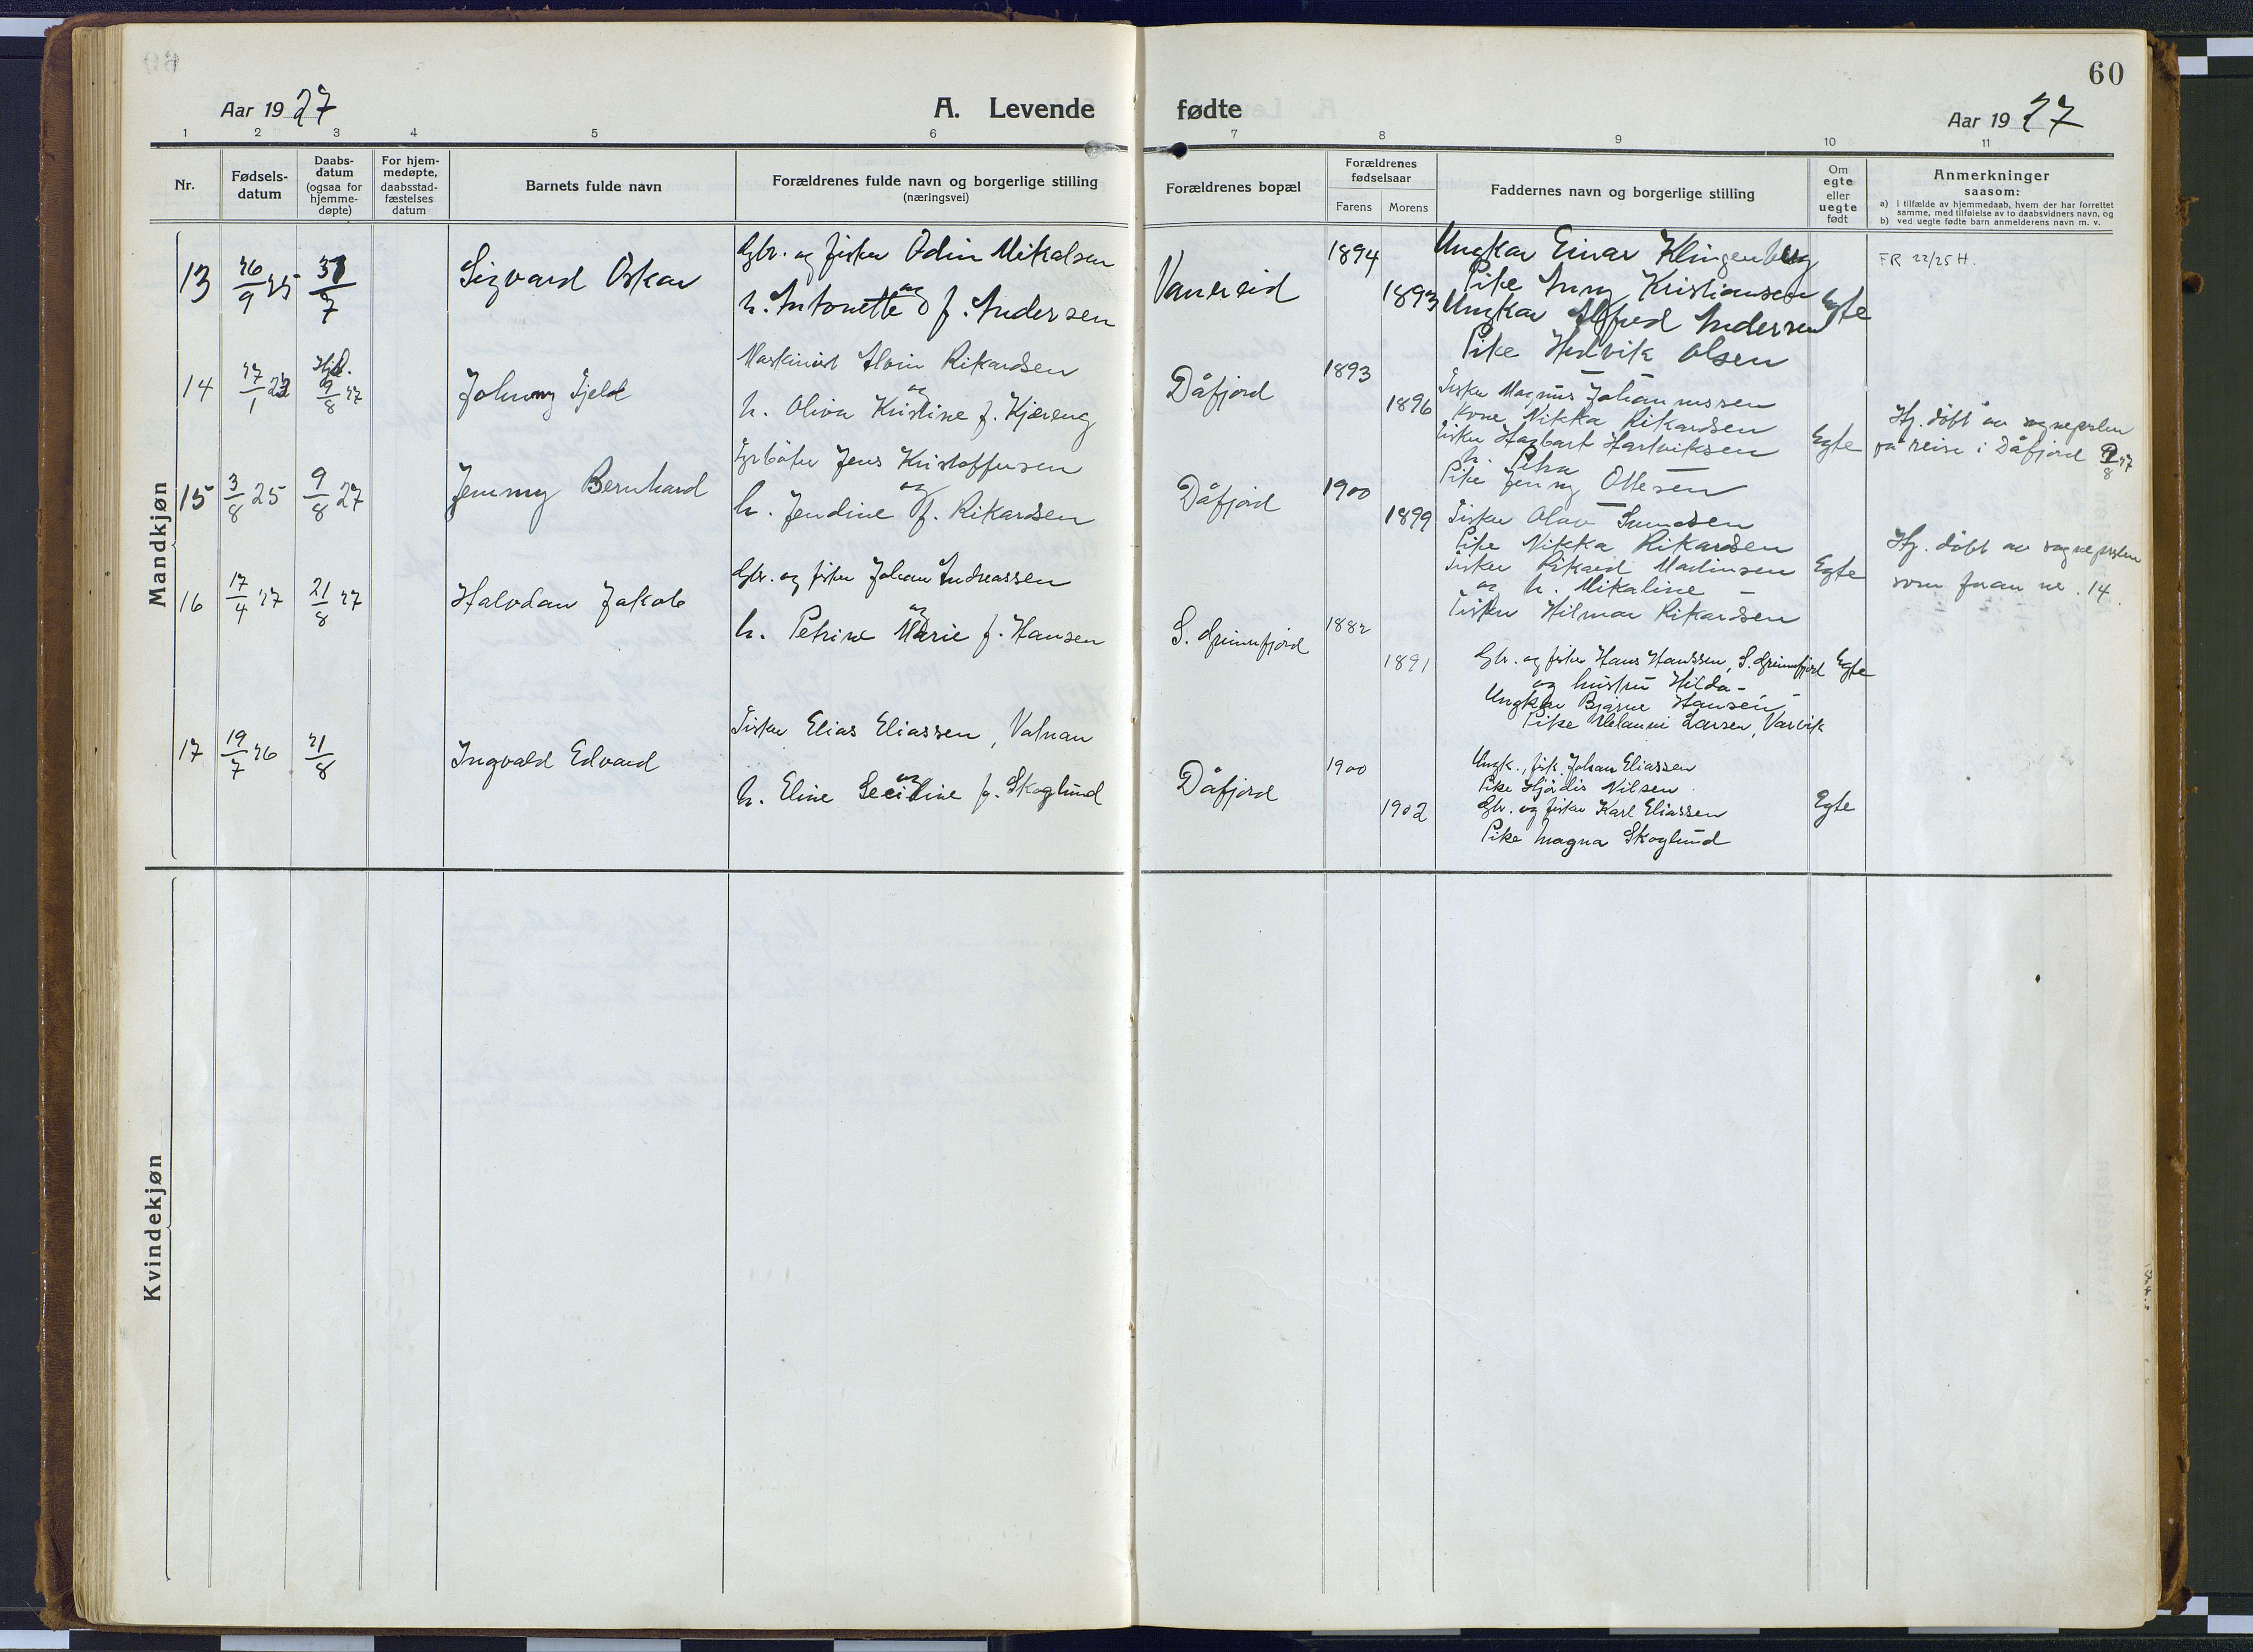 60
Aar 1927
A. Levende fødte
Aar 1927
1 2 3 4 5 6 7 8 9 10 11
Nr.
Fødsels-
datum
Daabs-
datum
(ogsaa for
hjemme-
døpte)
For hjem-
medøpte,
daabsstad-
fæstelses
datum
Barnets fulde navn
Forældrenes fulde navn og borgerlige stilling
(næringsvei)
Forældrenes bopæl
Forældrenes
fødselsaar
Farens Morens
Faddernes navn og borgerlige stilling
Om
egte
eller
uegte
født
Anmerkninger
saasom:
a) I tilfælde av hjemmedaab, hvem der har forrettet
samme, med tilføielse av to daabsvidners navn, og
b) ved uegte fødte barn anmelderens navn m. v.
Mandkjøn
13 26/9 25 31/7
Sigvard Oskar
Gbr. og fisker Odin Mikalsen
og
h. Antonette f. Andersen
Vannereid
1894
1893
Ungkar Einar Klingenberg
Pike Kristiansen
Ungkar Alfred Andersen
Pike Hedvik Olsen
Egte
FR 22/25 H.
14 27/1 Hjd. 9/8 27
Johnny Fjeld
Maskinist Alvin Rikardsen
og
h. Oliva Kristine f. Kjæreng
Dåfjord
1893
1896
Fisker Magnus Johannessen
Kone Nikka Rikardsen
Fisker Hagbart Hartviksen
h. Petra —
Pike Jenny Ottesen
Egte
Hj. døbt av sogneprsten
på reise i Dåfjord 9/8 27
15 3/8 25 9/8 27
Jemmy Bernhard
Fyrbøter Jens Kristoffersen
og
h. Jendine f. Rikardsen
Dåfjord
1900
1899
Fisker Olav
Pike Nikka Rikardsen
Fisker Rikard Martinsen
og h. Mikaline —
Fisker Hilmar Rikardsen
Egte
Hj. døbt av sogneprsten
som foran nr. 14.
16 17/4 27 21/8 27
Halvdan Jakob
Gbr. og fisker Johan Andreassen
og
h. Petrine Marie f. Hansen
S. Grunnfjord
1882
1891
Gbr. og fisker Hans Hanssen, S. Grunnfjord
og hustru Hilda —
Ungkar Bjarne Hansen, —
Pike Larsen, Vasvik
Egte
17 19/7 26 21/8
Ingvald Edvard
Fisker Elias Eliassen, Valnan
og
h. Eline f. Skoglund
Dåfjord
1900
1902
Ungk., fisk. Johan Eliassen
Pike Hjørdis Nilsen
Gbr. og fisker Karl Eliassen
Pike Magna Skoglund
Egte
Kvindekjøn